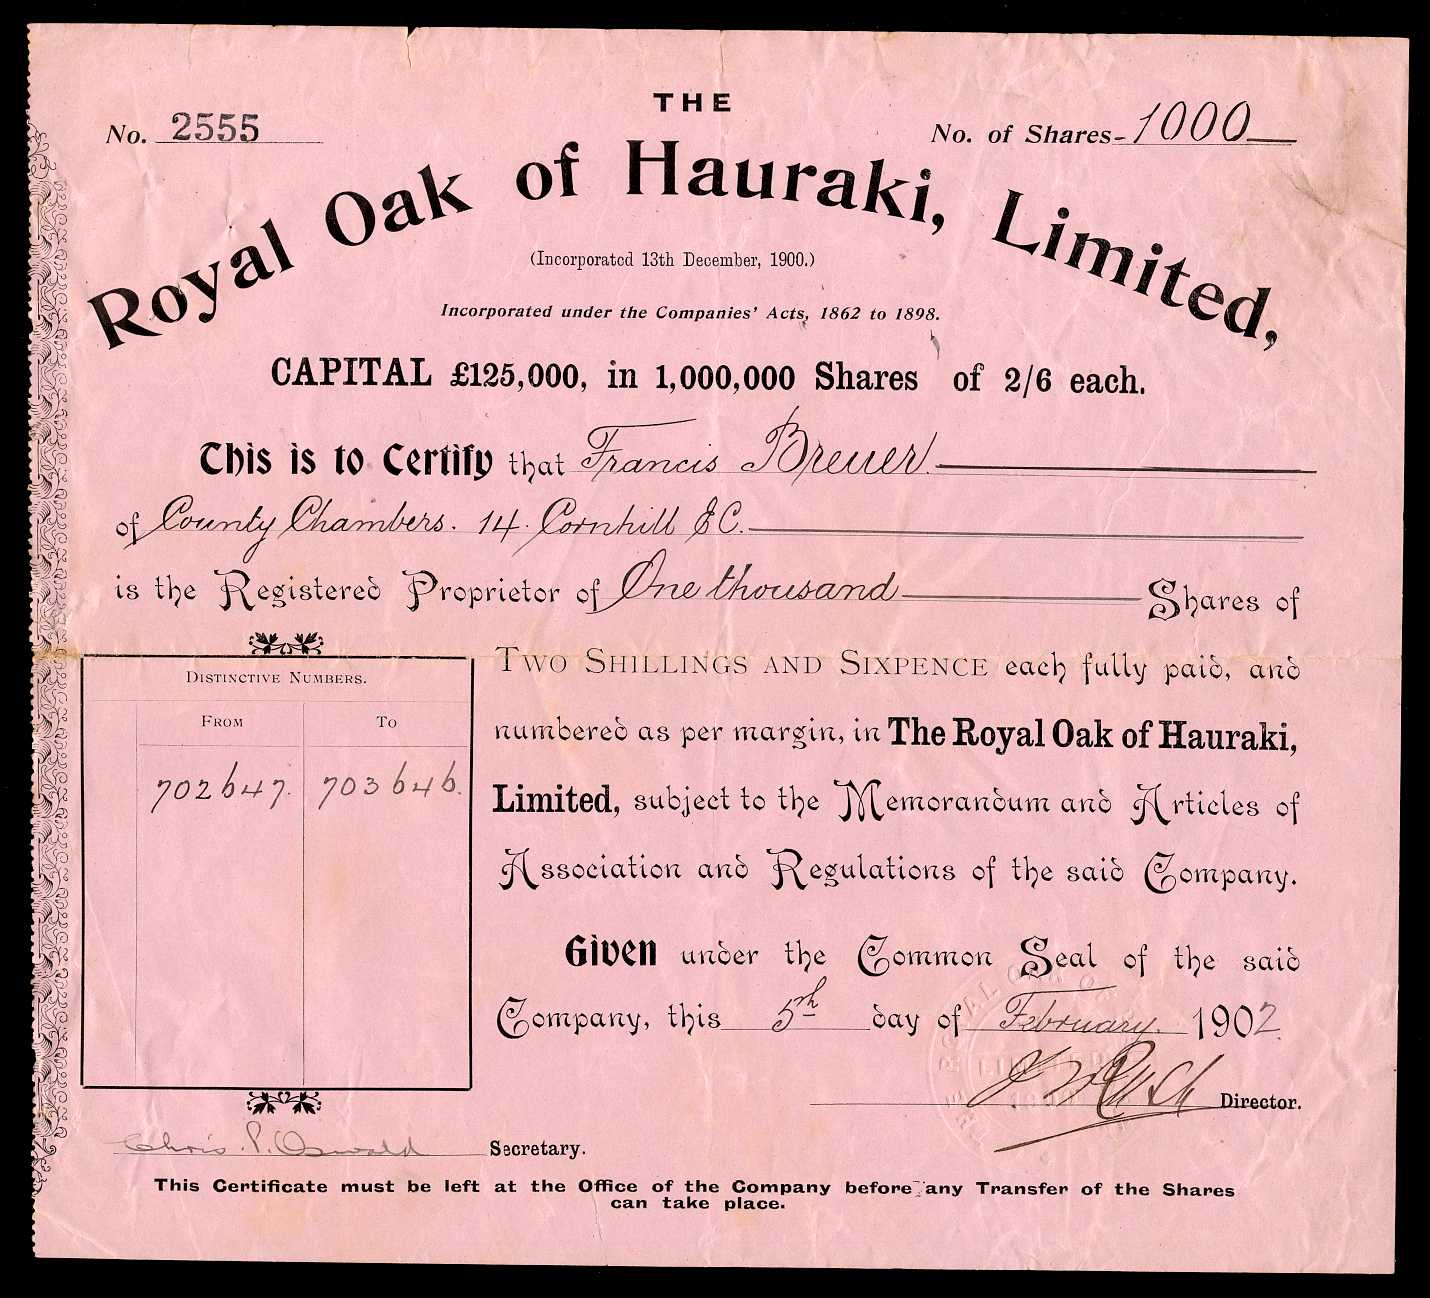 THE
No. 2555
No. of Shares 1000
Royal Oak of Hauraki, Limited,
(Incorporated 13th December, 1900.)
Incorporated under the Companies' Acts, 1862 to 1898.
CAPITAL £125,000, in 1,000,000 Shares of 2/6 each.
This is to Certify that Francis Breuer
of County Chambers. 14. Cornhill E C.
is the Registered Proprietor of One thousand Shares of
TWO SHILLINGS AND SIXPENCE each fully paid, and
numbered as per margin, in The Royal Oak of Hauraki,
Limited, subject to the Memorandum and Articles of
Association and Regulations of the said Company.
DISTINCTIVE NUMBERS.
FROM TO
702647. 703646.
Given under the Common Seal of the said
Company, this 5th day of February. 1902
Director.
Chris. P. Oswald Secretary.
This Certificate must be left at the Office of the Company before any Transfer of the Shares
can take place.